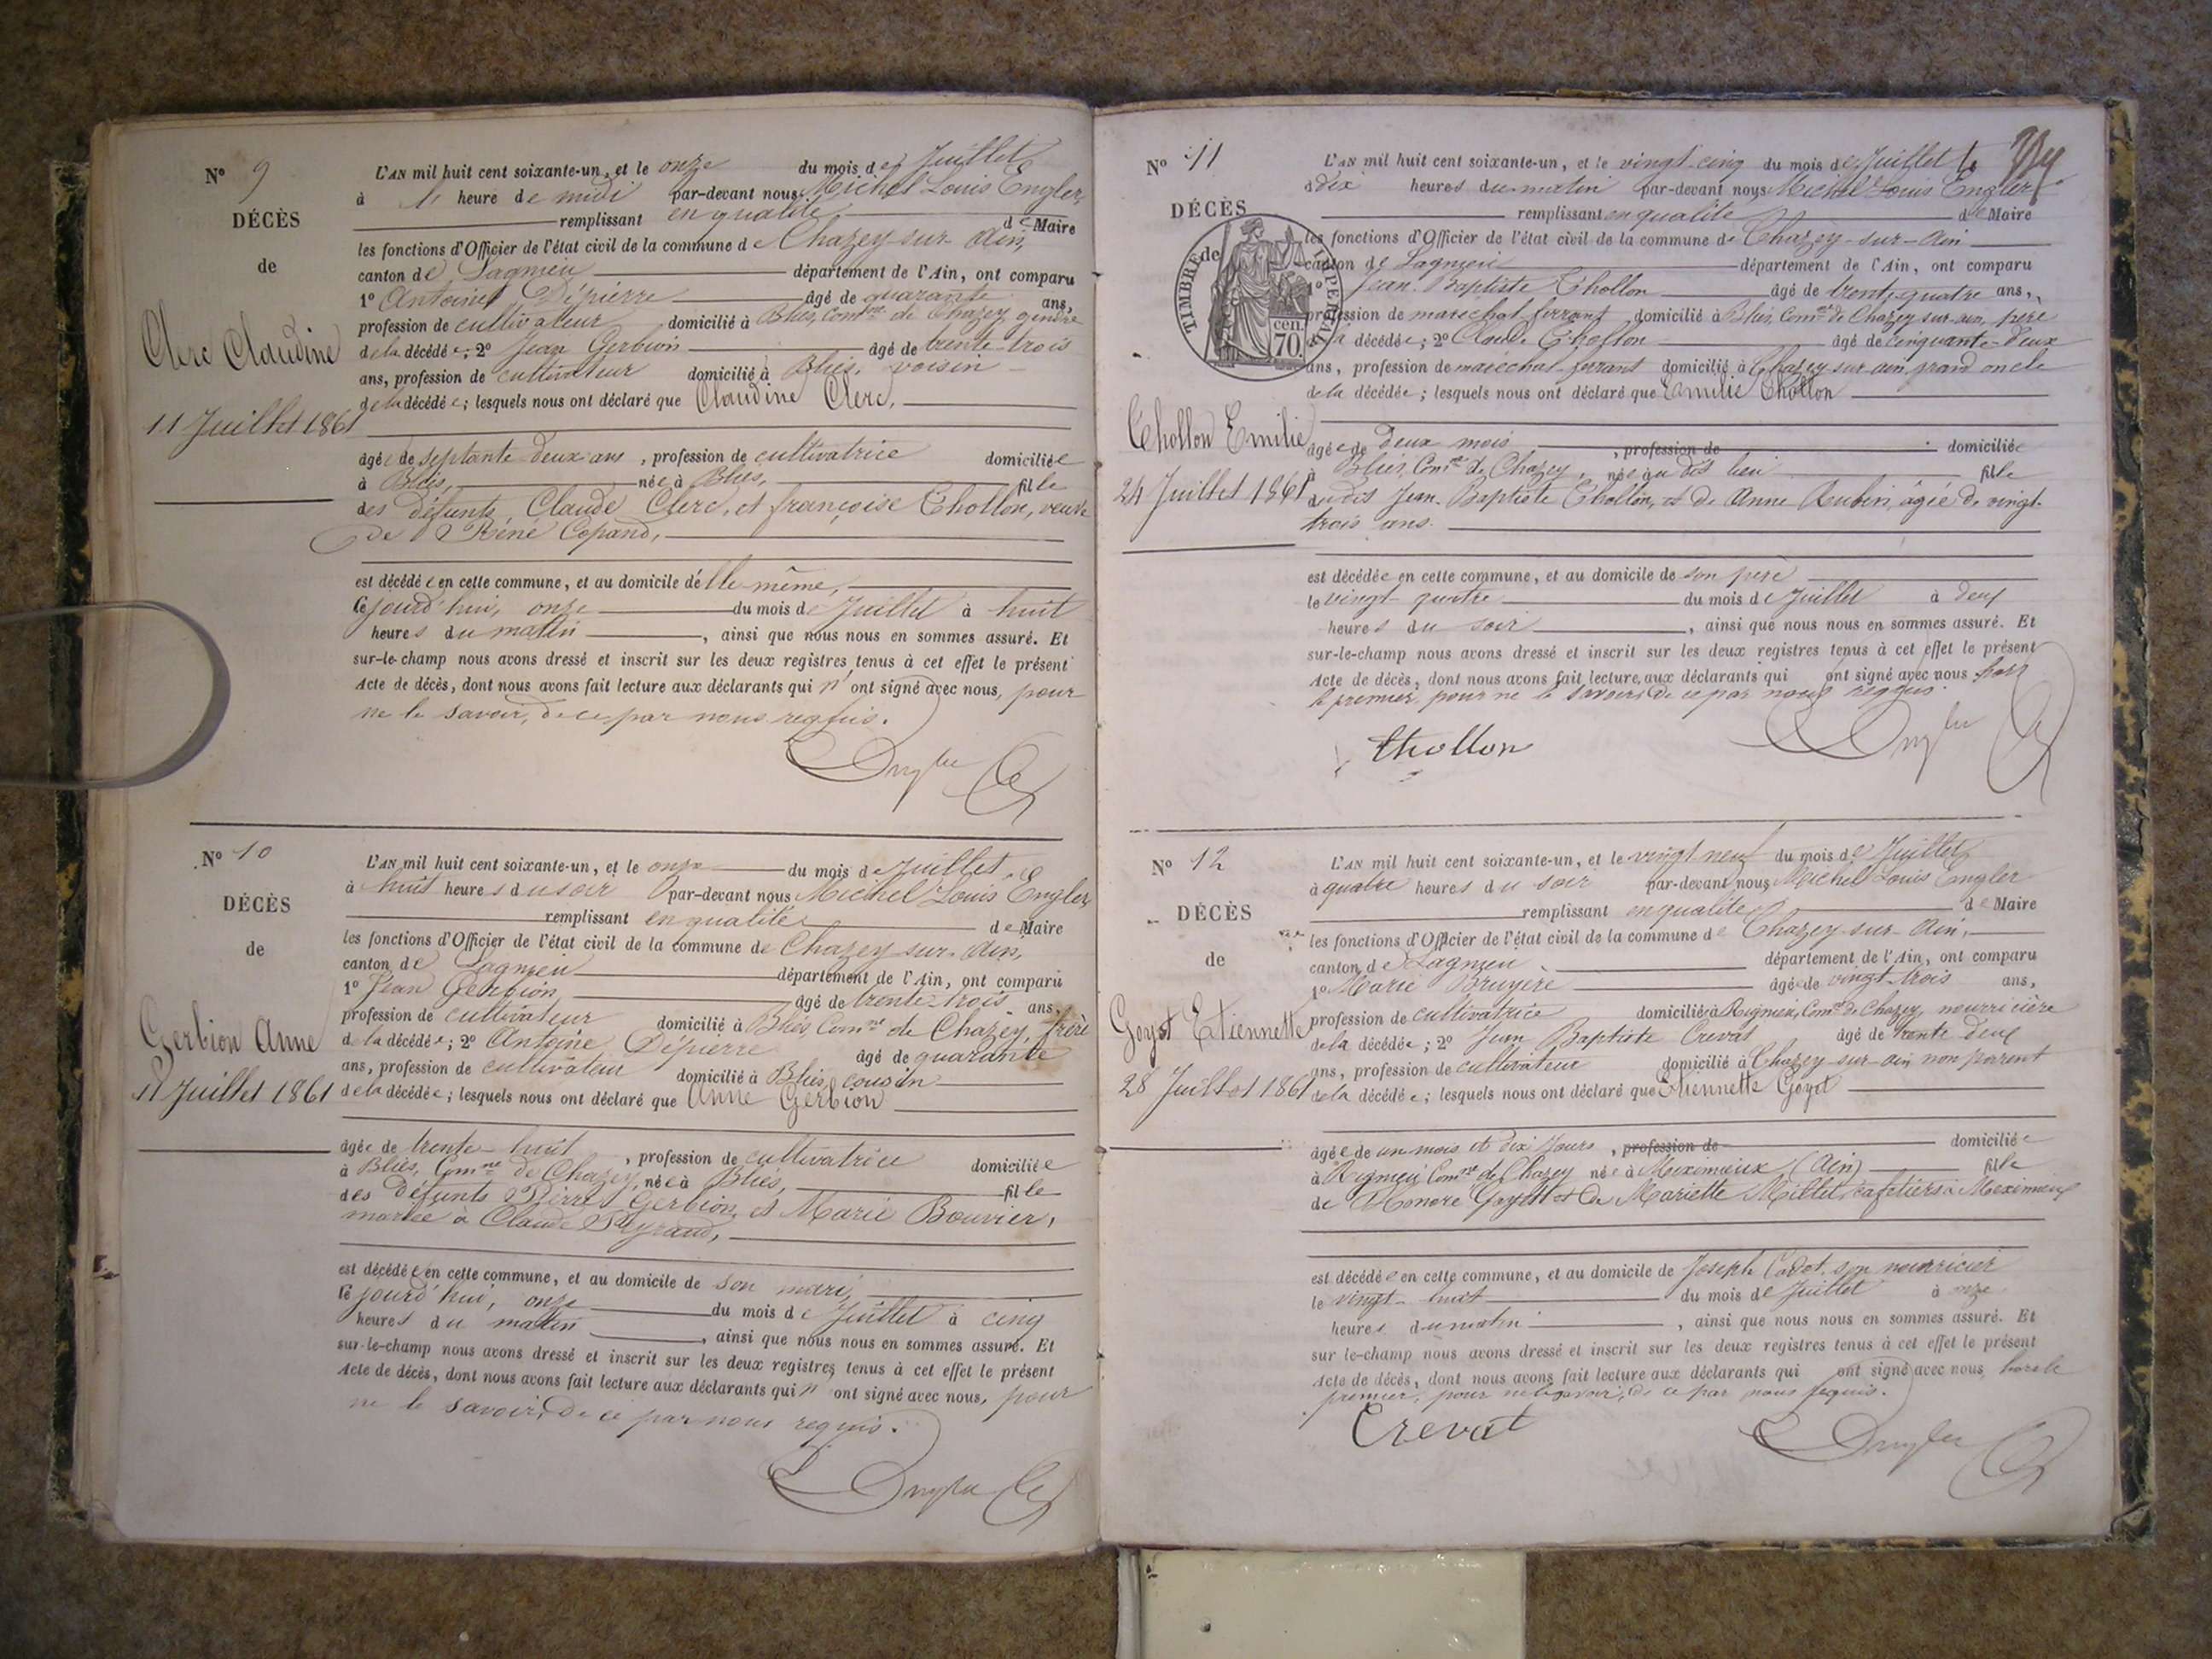 N° 9
DÉCÈS
de
Clerc Claudine
11 Juillet 1861
L'AN mil huit cent soixante-un, et le onze du mois de Juillet
à 1 heure de midi par-devant nous Michel Louis Engler,
remplissant en qualité de Maire
les fonctions d'Officier de l'état civil de la commune de Chazey-sur-Ain,
canton de Lagnieu département de l'Ain, ont comparu
1° Antoine Dépierre âgé de quarante ans,
profession de cultivateur domicilié à Bliès, Comne de Chazey, gendre
de la décédée; 2° Jean Gerbion âgé de trente-trois
ans, profession de cultivateur domicilié à Bliès, voisin
de la décédée; lesquels nous ont déclaré que Claudine Clerc,
âgée de septante deux ans, profession de cultivatrice domiciliée
à Bliès, née à Bliès, fille
des défunts Claude Clerc, et françoise Chollon, veuve
de Réné Copand,
est décédée en cette commune, et au domicile d'elle même,
le jourd'hui, onze du mois de Juillet à huit
heures du matin, ainsi que nous nous en sommes assuré. Et
sur-le-champ nous avons dressé et inscrit sur les deux registres tenus à cet effet le présent
Acte de décès, dont nous avons fait lecture aux déclarants qui n'ont signé avec nous, pour
ne le savoir, de ce par nous requis.
Engler
N° 10
DÉCÈS
de
Gerbion Anne
11 Juillet 1861
L'AN mil huit cent soixante-un, et le onze du mois de Juillet,
à huit heures du soir par-devant nous Michel Louis Engler,
remplissant en qualité de Maire
les fonctions d'Officier de l'état civil de la commune de Chazey-sur-Ain,
canton de Lagnieu département de l'Ain, ont comparu
1° Jean Gerbion, âgé de trente-trois ans,
profession de cultivateur domicilié à Bliès, Comne de Chazey, frère
de la décédée; 2° Antoine Dépierre âgé de quarante
ans, profession de cultivateur domicilié à Bliès, cousin
de la décédée; lesquels nous ont déclaré que Anne Gerbion
âgée de trente-huit, profession de cultivatrice domiciliée
à Bliès, Comne de Chazey, née à Bliès, fille
des défunts Pierre Gerbion, et Marie Bouvier,
mariée à Claude
est décédée en cette commune, et au domicile de son mari,
le jourd'hui, onze du mois de Juillet à cinq
heures du matin, ainsi que nous nous en sommes assuré. Et
sur-le-champ nous avons dressé et inscrit sur les deux registres tenus à cet effet le présent
Acte de décès, dont nous avons fait lecture aux déclarants qui n'ont signé avec nous, pour
ne le savoir, de ce par nous requis.
Engler
N° 11
DÉCÈS
de
TIMBRE IMPÉRIAL
70 cen.
Chollon Emilie
24 Juillet 1861
L'AN mil huit cent soixante-un, et le vingt-cinq du mois de Juillet
à dix heures du matin par-devant nous Michel Louis Engler
remplissant en qualité de Maire
les fonctions d'Officier de l'état civil de la commune de Chazey-sur-Ain
canton de Lagnieu département de l'Ain, ont comparu
1° Jean-Baptiste Chollon âgé de trente-quatre ans,
profession de maréchal ferrant domicilié à Bliès, Comne de Chazey-sur-ain, père
de la décédée; 2° Claude Chollon âgé de cinquante-deux
ans, profession de maréchal ferrant domicilié à Chazey sur ain, grand oncle
de la décédée; lesquels nous ont déclaré que Emilie Chollon
âgée de deux mois, profession de domiciliée
à Bliès, Comne de Chazey, née au dit lieu fille
du dit Jean-Baptiste Chollon, et de Anne Aubin, âgée de vingt-
trois ans.
est décédée en cette commune, et au domicile de son père
le vingt-quatre du mois de Juillet à deux
heures du soir, ainsi que nous nous en sommes assuré. Et
sur-le-champ nous avons dressé et inscrit sur les deux registres tenus à cet effet le présent
Acte de décès, dont nous avons fait lecture aux déclarants qui ont signé avec nous hors
le premier, pour ne le savoir, de ce par nous requis.
Chollon
Engler
N° 12
DÉCÈS
de
Goyot Etiennette
28 Juillet 1861
L'AN mil huit cent soixante-un, et le vingt neuf du mois de Juillet
à quatre heures du soir par-devant nous Michel Louis Engler
remplissant en qualité de Maire
les fonctions d'Officier de l'état civil de la commune de Chazey-sur-Ain,
canton de Lagnieu département de l'Ain, ont comparu
1° Marie Bruyère âgée de vingt-trois ans,
profession de cultivatrice domiciliée à Rignieu, Comne de Chazey, nourricière
de la décédée; 2° Jean Baptiste Crevat âgé de trente deux
ans, profession de cultivateur domicilié à Chazey-sur-ain, non parent
de la décédée; lesquels nous ont déclaré que Etiennette Goyot
âgée de un mois et dix jours, profession de domiciliée
à Rignieu Comne de Chazey née à Meximieux (Ain) fille
de Honoré Goyot et de Mariette Millet, cafetiers à Meximieux
est décédée en cette commune, et au domicile de Joseph Cadot, son nourricier
le vingt-huit du mois de Juillet à onze
heures du matin, ainsi que nous nous en sommes assuré. Et
sur-le-champ nous avons dressé et inscrit sur les deux registres tenus à cet effet le présent
Acte de décès, dont nous avons fait lecture aux déclarants qui ont signé avec nous hors le
premier, pour ne le savoir, de ce par nous requis.
Crevat
Engler